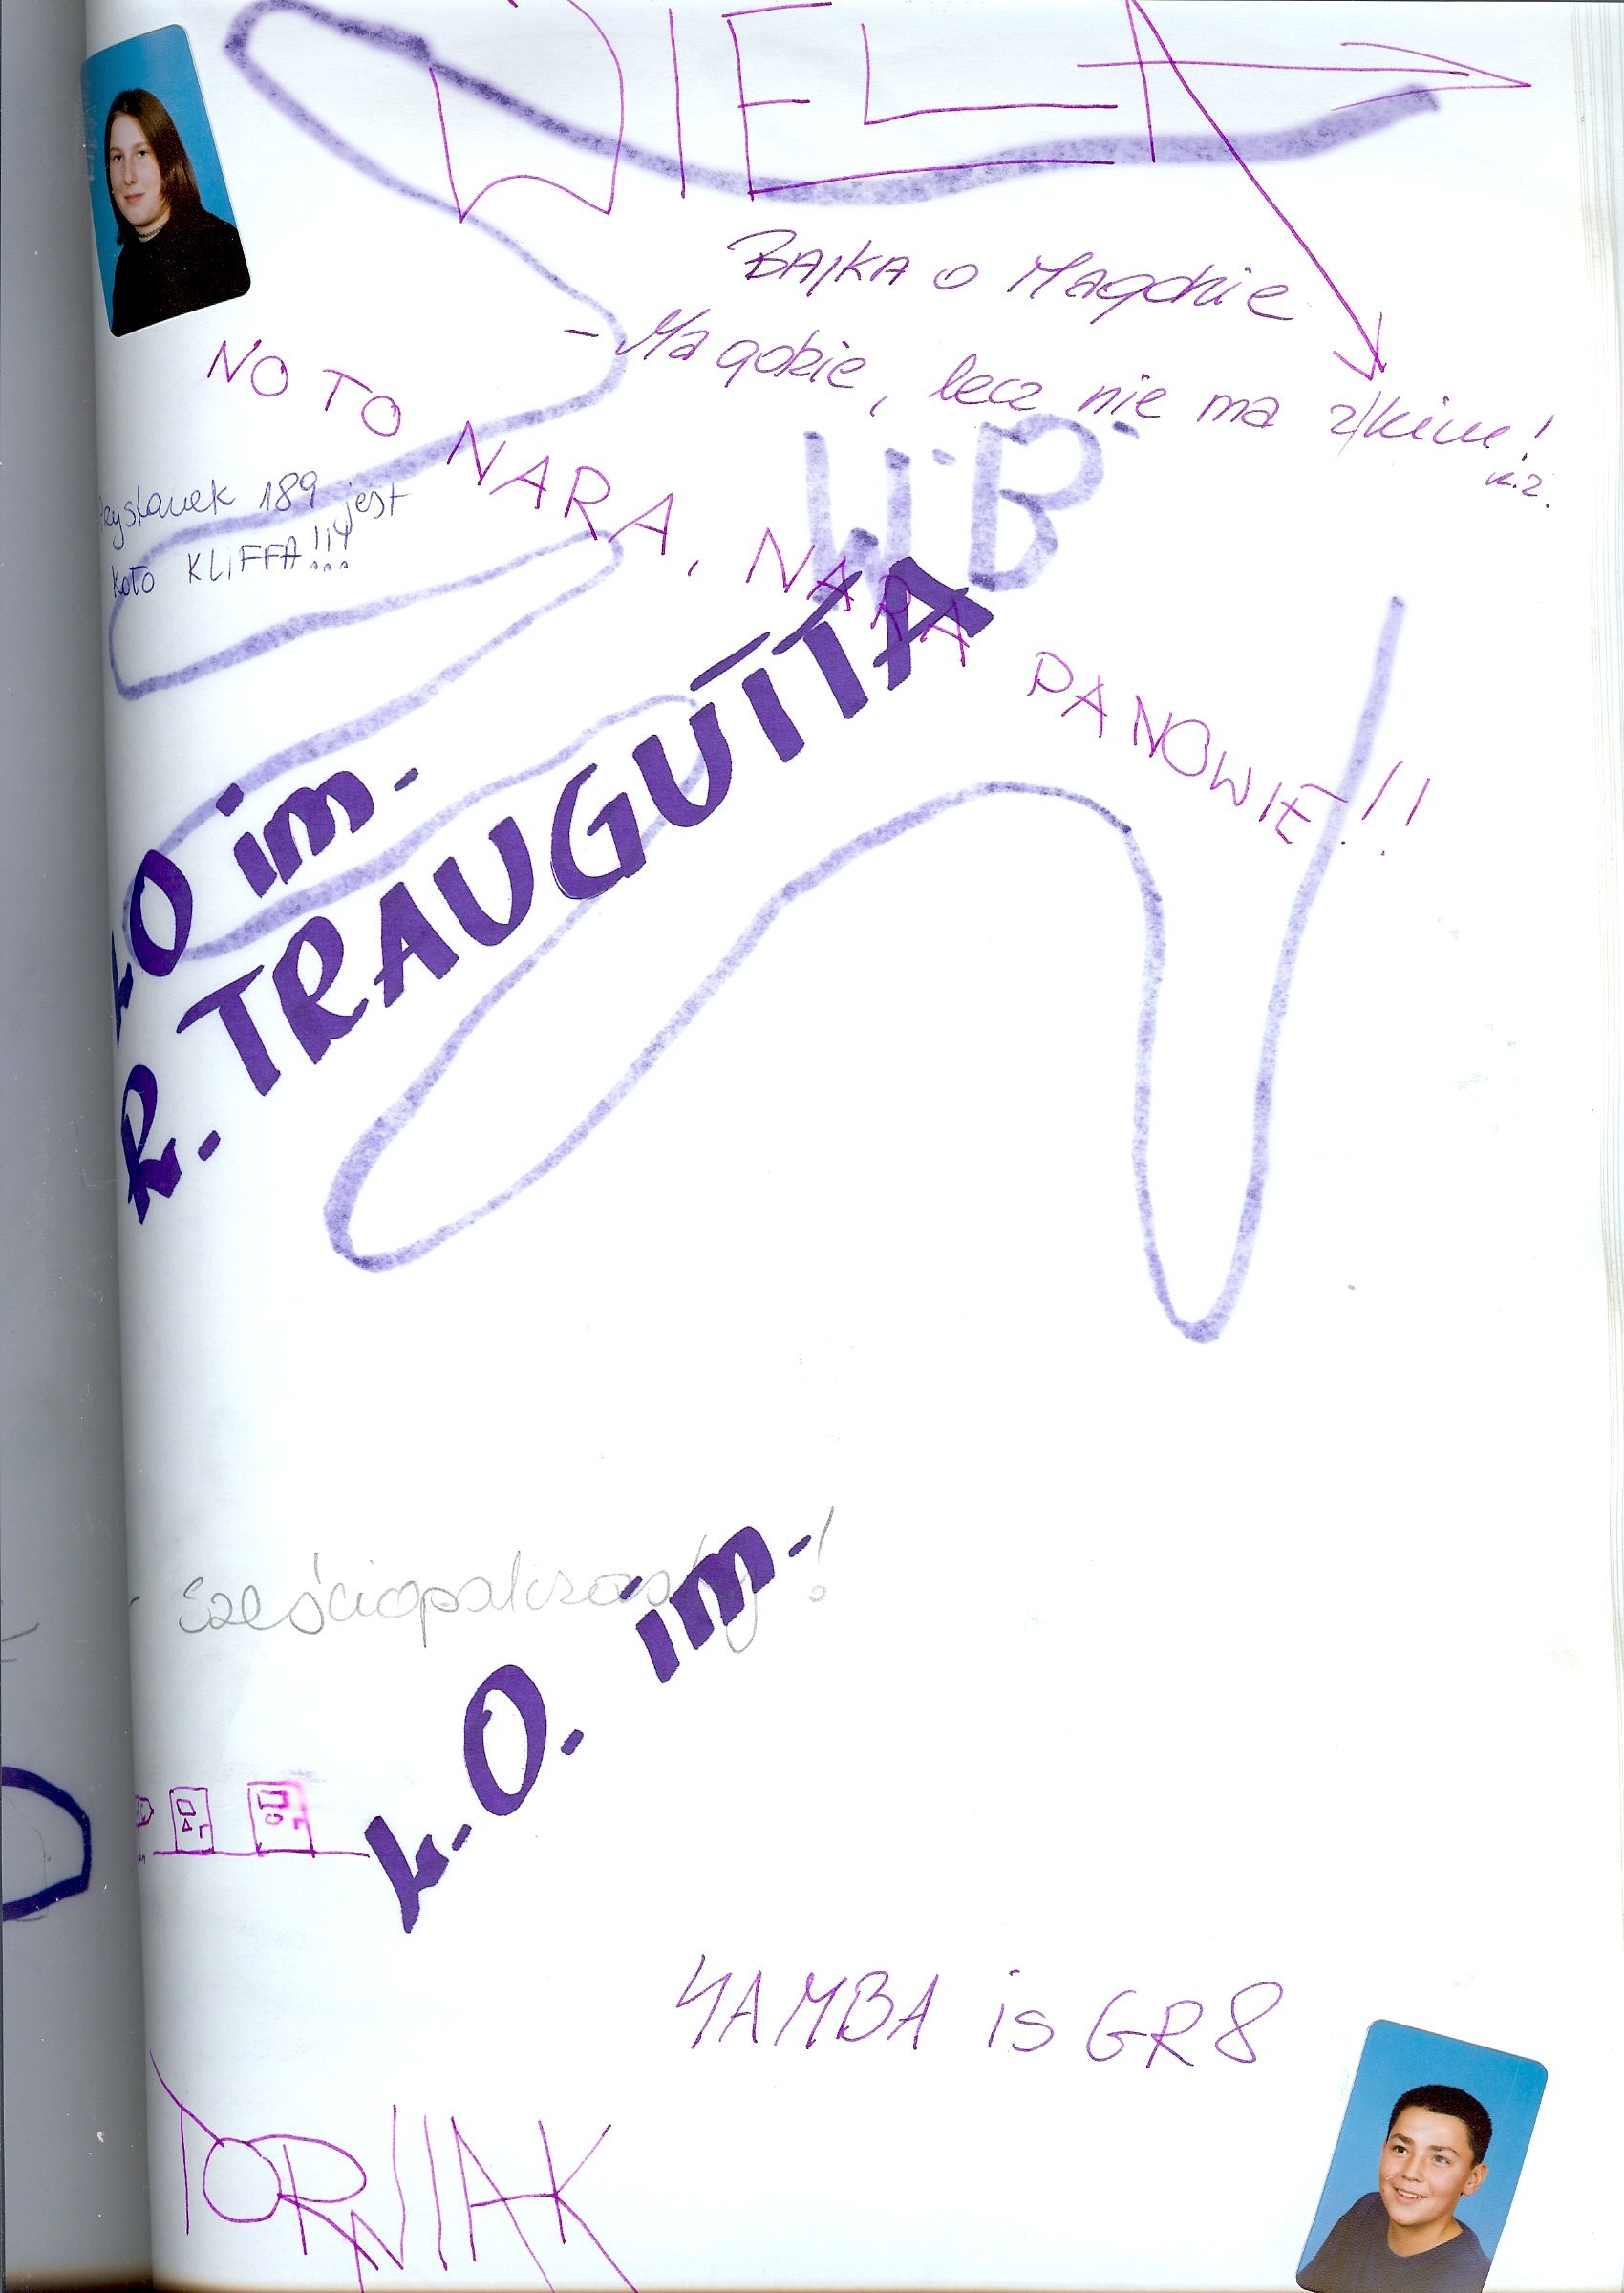 WIELA
BAJKA o Magdzie
- Ma gdzie, lecz nie ma z kim!
NO TO NARA, NARA PANOWIE!!
W.B.
Przystanek 189 jest
koło KLIFFA!!!
LO im.
R. TRAUGUTTA
sześciopalczasty!
L.O. im.
YAMBA is GR8
TORNIAK